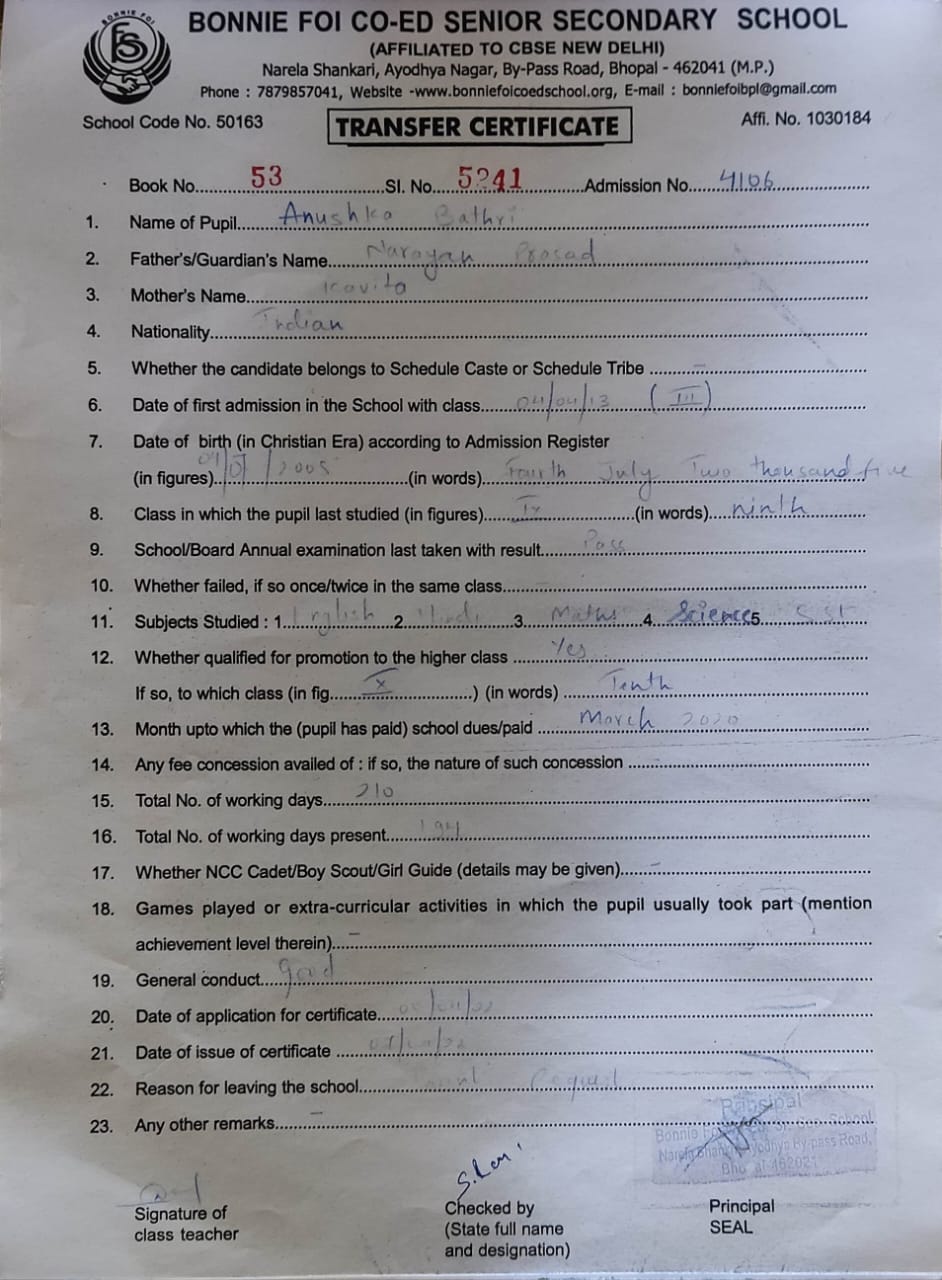 BONNIE FOI
BONNIE FOI CO-ED SENIOR SECONDARY SCHOOL
(AFFILIATED TO CBSE NEW DELHI)
Narela Shankari, Ayodhya Nagar, By-Pass Road, Bhopal - 462041 (M.P.)
Phone : 7879857041, Website -www.bonniefoicoedschool.org, E-mail : bonniefoibpl@gmail.com
School Code No. 50163 TRANSFER CERTIFICATE Affi. No. 1030184
Book No. 53 Sl. No. 5241 Admission No. 4106
1. Name of Pupil Anushka Bathri
2. Father's/Guardian's Name Narayan Prasad
3. Mother's Name Kavita
4. Nationality Indian
5. Whether the candidate belongs to Schedule Caste or Schedule Tribe –
6. Date of first admission in the School with class 04/04/13 (III)
7. Date of birth (in Christian Era) according to Admission Register
(in figures) 04/07/2005 (in words) Fourth July Two thousand five
8. Class in which the pupil last studied (in figures) IX (in words) ninth
9. School/Board Annual examination last taken with result Pass
10. Whether failed, if so once/twice in the same class
11. Subjects Studied : 1. English 2. Hindi 3. Maths 4. Science 5. S.St
12. Whether qualified for promotion to the higher class Yes
If so, to which class (in fig. X ) (in words) Tenth
13. Month upto which the (pupil has paid) school dues/paid March 2020
14. Any fee concession availed of : if so, the nature of such concession
15. Total No. of working days 210
16. Total No. of working days present
17. Whether NCC Cadet/Boy Scout/Girl Guide (details may be given) –
18. Games played or extra-curricular activities in which the pupil usually took part (mention
achievement level therein) –
19. General conduct Good
20. Date of application for certificate
21. Date of issue of certificate
22. Reason for leaving the school Request
23. Any other remarks –
Principal
Bonnie School
Ayodhya By-pass Road,
Signature of
class teacher
Checked by
(State full name
and designation)
Principal
SEAL